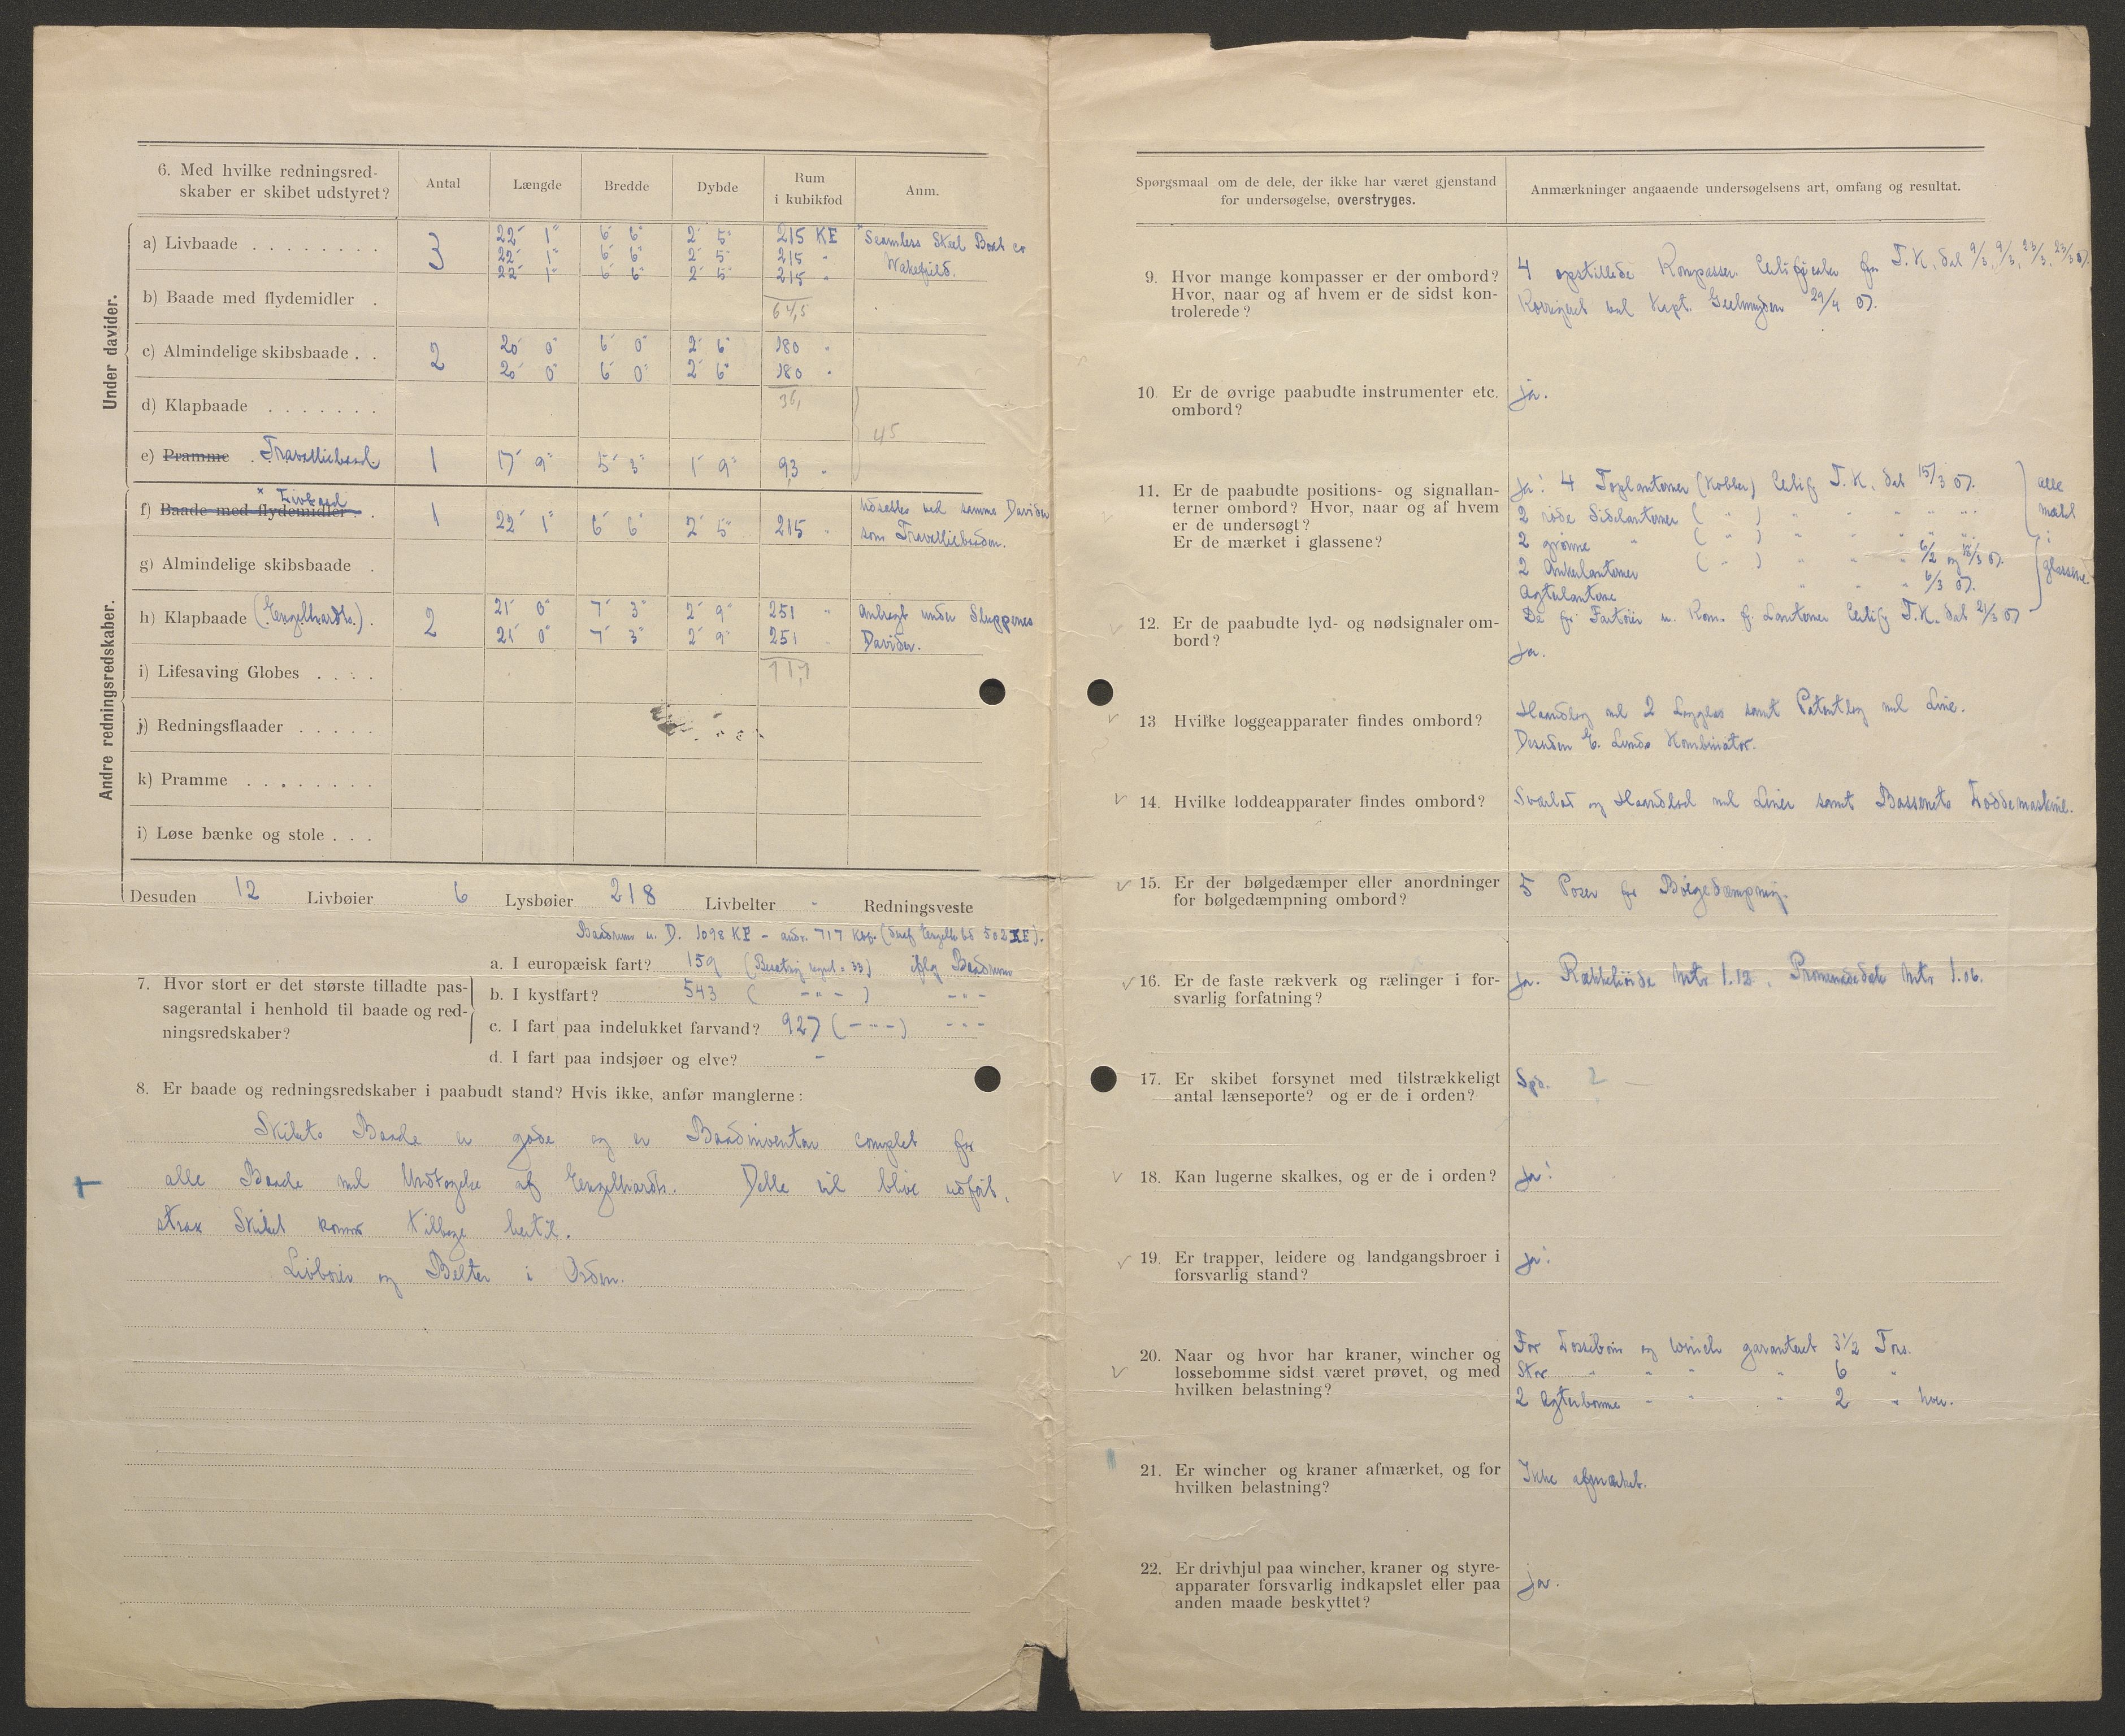 6. Med hvilke redningsred-
skaber er skibet udstyret?
Antal
Længde
Bredde
Dybde
Rum
i kubikfod
Anm.
Under davider.
a) Livbaade . . . . . . . .
3
22' 1" 6' 6" 2' 5" 215 KF
22' 1" 6' 6" 2' 5" 215 "
22' 1" 6' 6" 2' 5" 215 "
"Seamless Steel Boat co
Wakefield.
b) Baade med flydemidler .
64,5
c) Almindelige skibsbaade . .
2
20' 0" 6' 0" 2' 6" 180 "
20' 0" 6' 0" 2' 6" 180 "
d) Klapbaade . . . . . . .
36,
45
e) Pramme . Travalliebaad.
1 17' 9" 5' 3" 1' 9" 93 "
Andre redningsredskaber.
* Livbaad
f) Baade med flydemidler . .
1 22' 1" 6' 6" 2' 5" 215 "
udsættes ved samme Davider
som Travalliebaaden.
g) Almindelige skibsbaade .
h) Klapbaade (Engelhardts.) .
2
21' 0" 7' 3" 2' 9" 251 "
21' 0" 7' 3" 2' 9" 251 "
Anbragt under Sluppenes
Davider.
i) Lifesaving Globes . . . .
717
j) Redningsflaader . . . . .
k) Pramme . . . . . . . .
i) Løse bænke og stole . . .
Desuden 12 Livbøier 6 Lysbøier 218 Livbelter - Redningsveste
Baadrum u. D. 1098 KF - andr. 717 Kbf. (deraf Engelh. bd 502 KF).
7. Hvor stort er det største tilladte pas-
sagerantal i henhold til baade og red-
ningsredskaber?
a. I europæisk fart? 159 (Besætng regnet = 33) iflg Baadrum
b. I kystfart? 543 ( -"- ) -"-
c. I fart paa indelukket farvand? 927 ( -"- ) -"-
d. I fart paa indsjøer og elve? -
8. Er baade og redningsredskaber i paabudt stand? Hvis ikke, anfør manglerne:
Skibets Baade er gode og er Baadinventar complet for
alle Baade med Undtagelse af Engelhardts. Dette vil blive udført,
strax Skibet kommer tilbage hertil.
Livbøier og Belter i Orden.
Spørgsmaal om de dele, der ikke har været gjenstand
for undersøgelse, overstryges.
Anmærkninger angaaende undersøgelsens art, omfang og resultat.
9. Hvor mange kompasser er der ombord?
Hvor, naar og af hvem er de sidst kon-
trolerede?
4 opstillede Kompasser. Certificater fra T.K. dat 9/3, 9/3, 23/3, 23/3 07.
Korrigeret ved Kapt. Geelmuyden 29/4 07.
10. Er de øvrige paabudte instrumenter etc.
ombord?
Ja.
11. Er de paabudte positions- og signallan-
terner ombord? Hvor, naar og af hvem
er de undersøgt?
Er de mærket i glassene?
Ja! 4 Toplanterner (Kobber) Certif T.K. dat 15/3 07.
2 røde Sidelanterner ( " ) " " " "
2 grønne " ( " ) " " " "
2 Ankerlanterner ( " ) " " " 6/2 og 18/3 07.
Agterlanterne " " " 6/3 07.
alle
mækt
i
glassene.
De for Fartøier u. Kom. f. Lanterner Certif T.K. dat 21/3 07
12. Er de paabudte lyd- og nødsignaler om-
bord?
Ja.
13 Hvilke loggeapparater findes ombord?
Haandlog med 2 Logglas samt Patentlog med Line.
Desuden E. Lunds Kombinator.
14. Hvilke loddeapparater findes ombord?
Sværlod og Haandlod med Liner samt Bassenets Loddemaskine.
15. Er der bølgedæmper eller anordninger
for bølgedæmpning ombord?
5 Poser for Bølgedæmpning.
16. Er de faste rækverk og rælinger i for-
svarlig forfatning?
Ja. Rækkehøide Mtr 1.12. Promenadedæk Mtr 1.06.
17. Er skibet forsynet med tilstrækkeligt
antal lænseporte? og er de i orden?
Spd. 2 —
18. Kan lugerne skalkes, og er de i orden?
Ja!
19. Er trapper, leidere og landgangsbroer i
forsvarlig stand?
Ja!
20. Naar og hvor har kraner, wincher og
lossebomme sidst været prøvet, og med
hvilken belastning?
For Lossebom og winch garanteret 3 1/2 Tons.
Stor " " " 6 "
2 Agterbomme " " " 2 " hver.
21. Er wincher og kraner afmærket, og for
hvilken belastning?
Ikke afmærket.
22. Er drivhjul paa wincher, kraner og styre-
apparater forsvarlig indkapslet eller paa
anden maade beskyttet?
Ja.